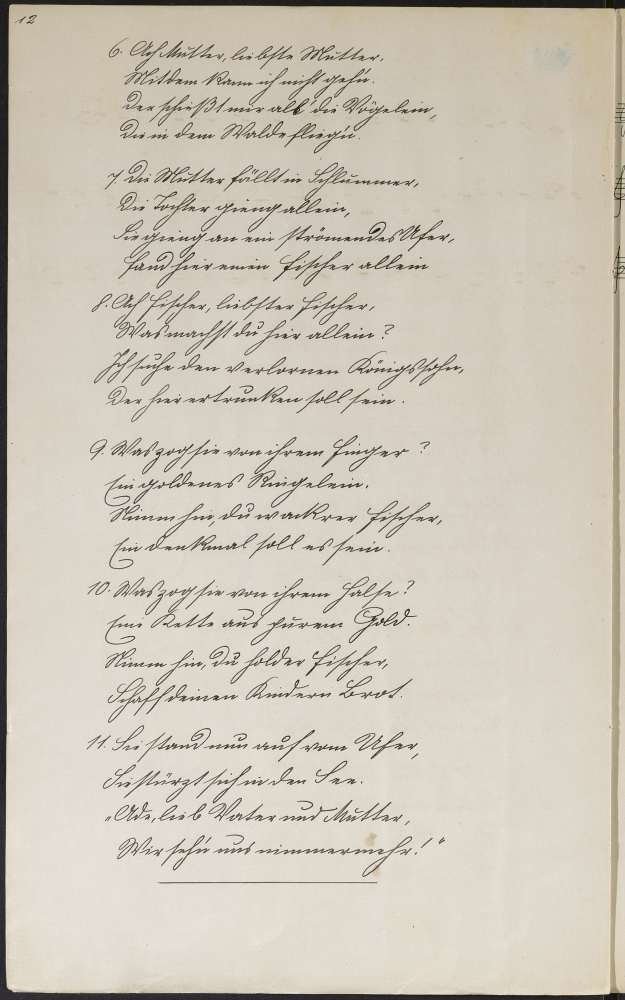 12
6. Ach Mutter, liebste Mutter,
Mit dem kann ich nicht gehn.
Der schießt mir all' die Vögelein,
Die in dem Walde flieg'n.
7. Die Mutter fällt in Schlummer,
Die Tochter gieng allein,
Sie gieng an ein strömendes Ufer,
Fand hier einen Fischer allein
8. Ach Fischer, liebster Fischer,
Was machst du hier allein?
Ich suche den verlornen Königssohn,
Der hier ertrunken soll sein.
9. Was zog sie von ihrem Finger?
Ein goldenes Ringelein.
Nimm hin, du wackrer Fischer,
Ein Denkmal soll es sein.
10. Was zog sie von ihrem Halse?
Eine Kette aus purem Gold.
Nimm hin, du holder Fischer,
Schaff deinen Kindern Brot.
11. Sie stand nun auf vom Ufer,
Sie stürzt sich in den See.
„Ade, lieb Vater und Mutter,
Wir seh'n uns nimmermehr!"